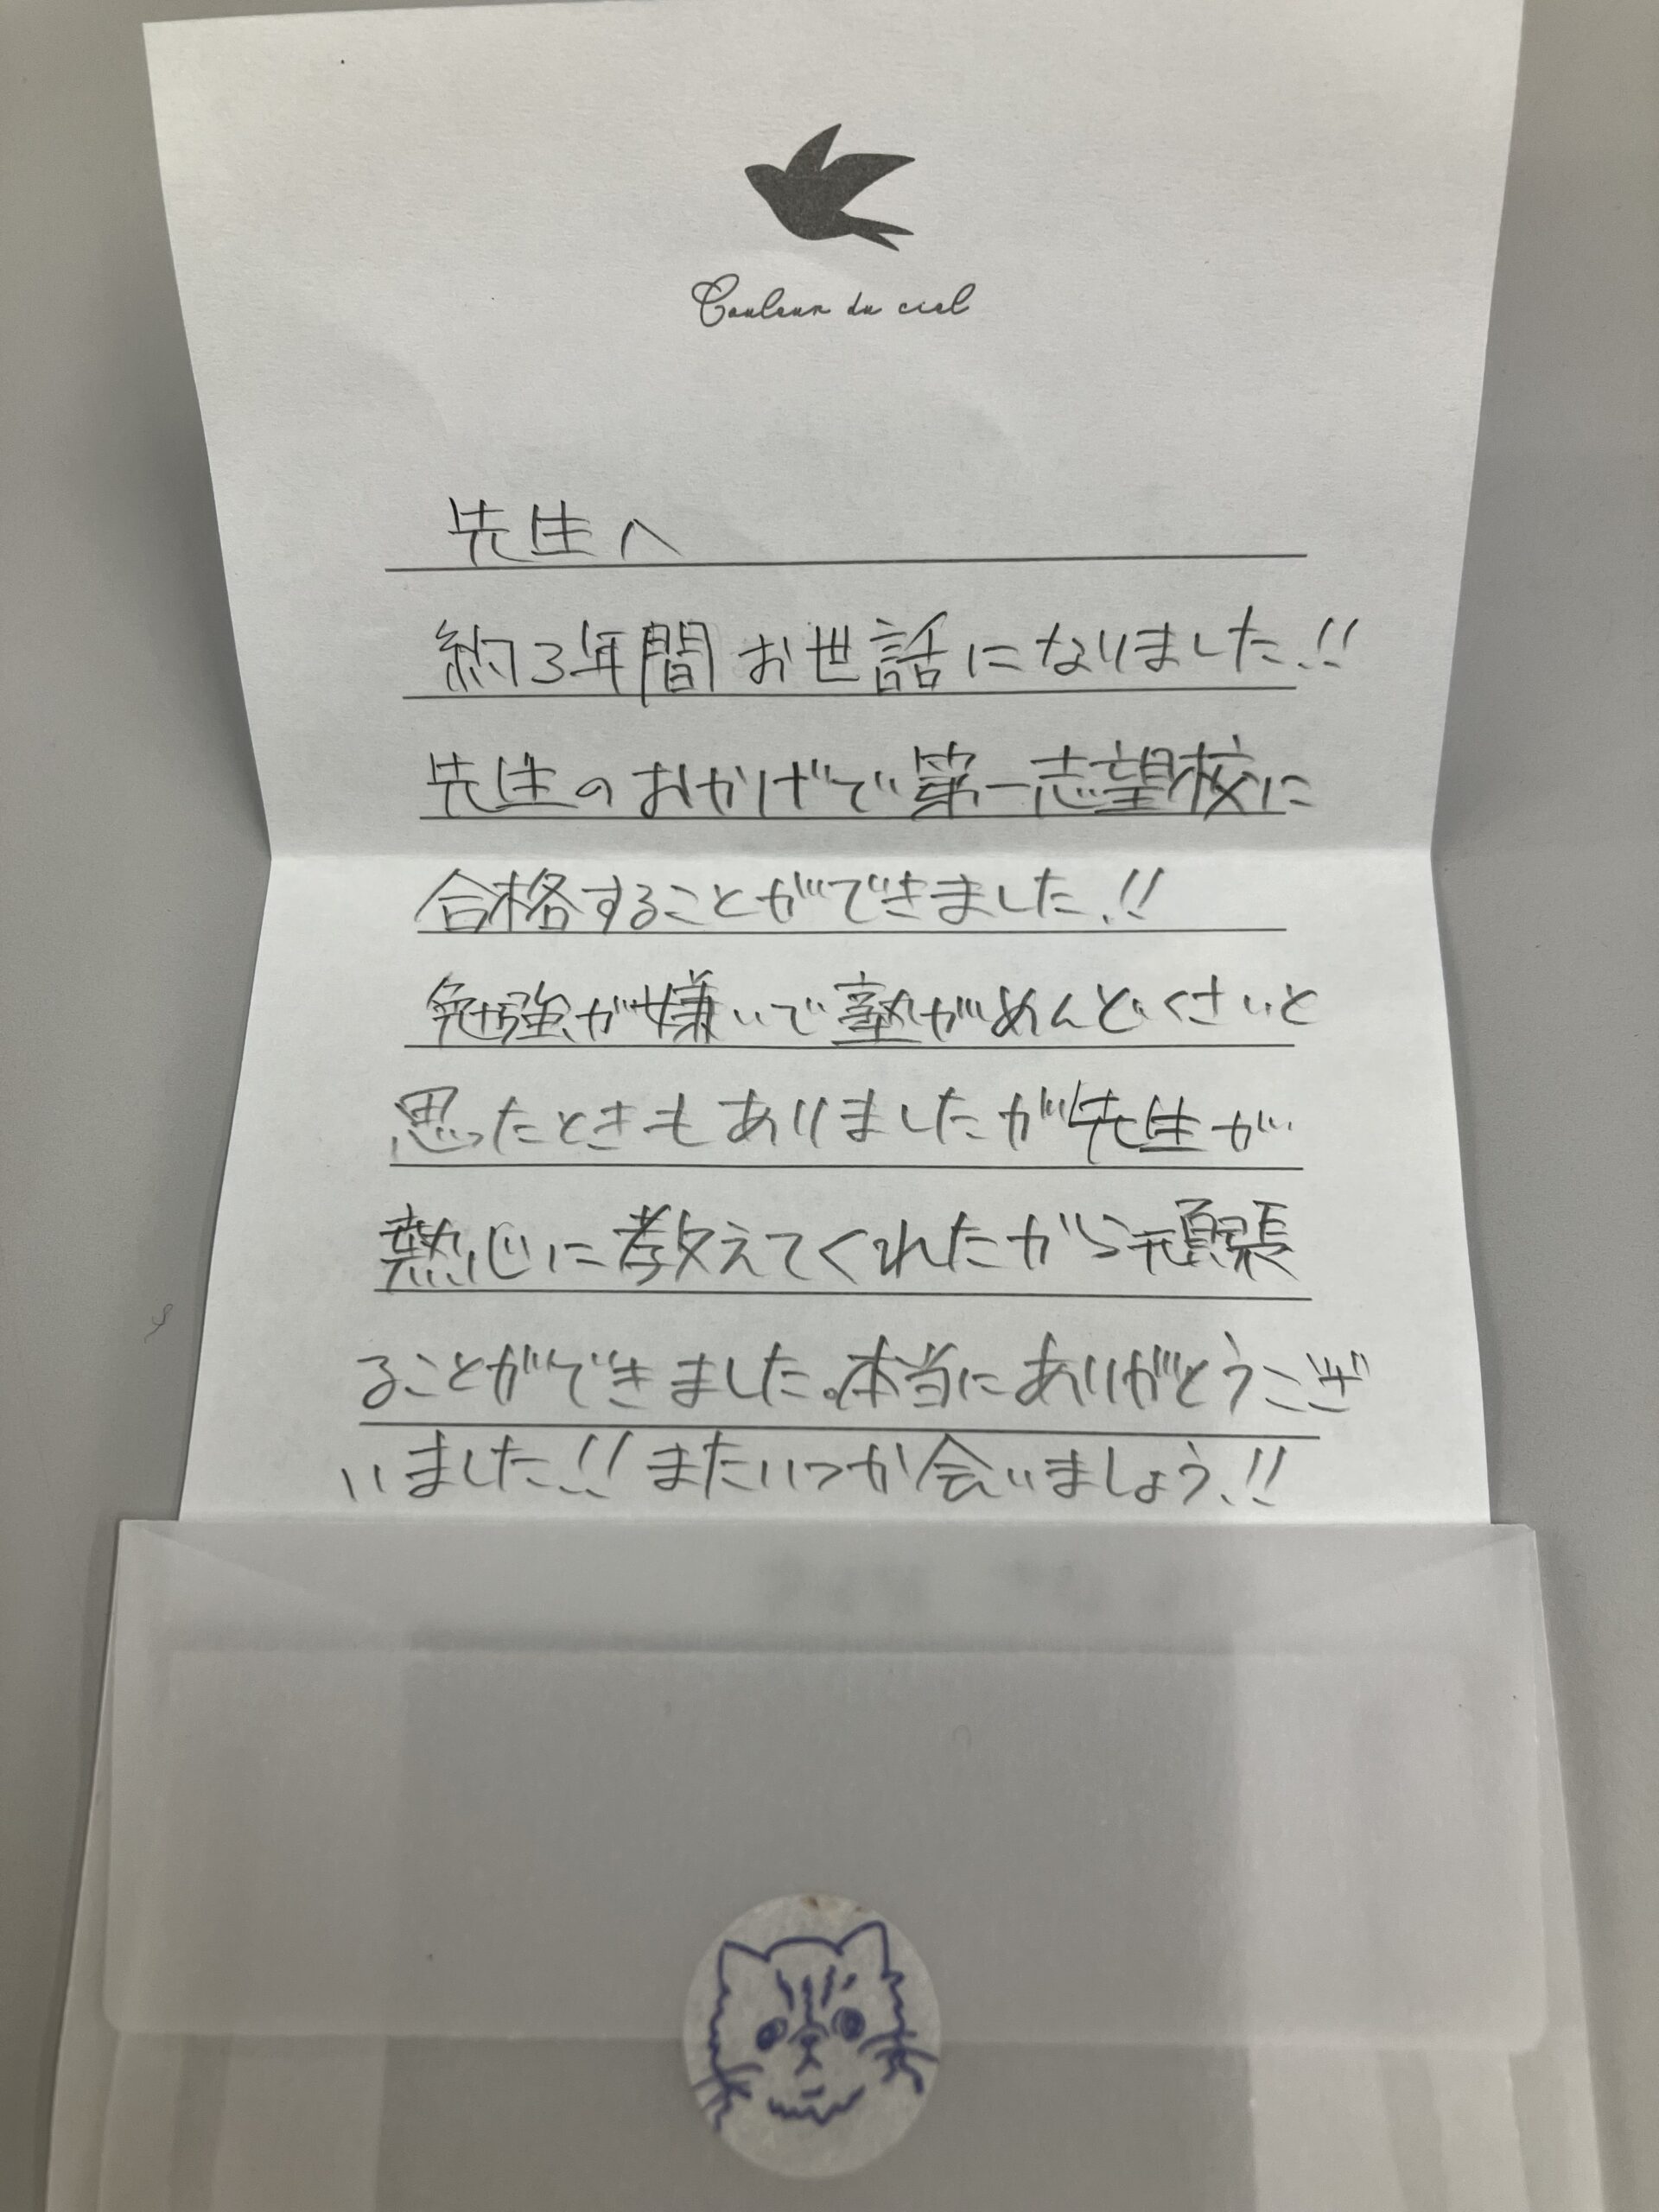 Couleur du ciel
先生へ
約3年間お世話になりました!!
先生のおかげで第一志望校に
合格することができました!!
勉強が嫌いで塾がめんどくさいと
思ったときもありましたが先生が
熱心に教えてくれたから頑張
ることができました。本当にありがとうござ
いました!!またいつか会いましょう!!